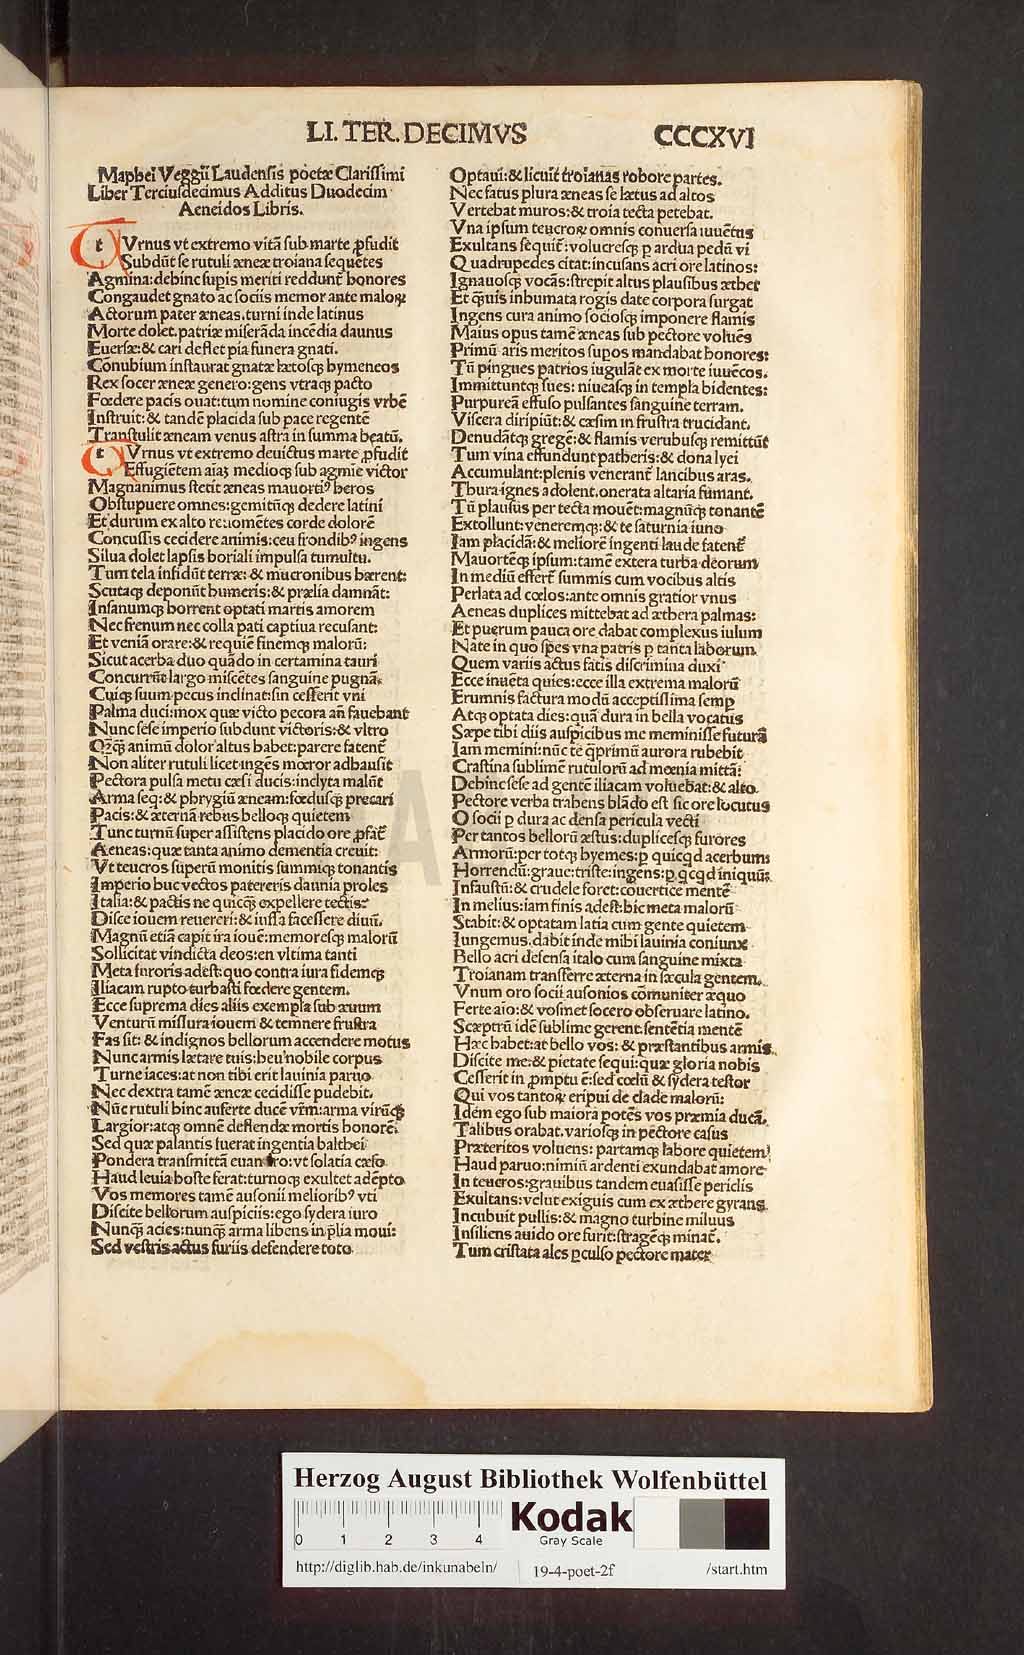 LI. TER. DECIMVS
CCCXVI
Maphei Veggii Laudensis poetæ Clarissimi
Liber Terciusdecimus Additus Duodecim
Aeneidos Libris.
tVrnus vt extremo vitã sub marte ꝓfudit
Subdũt se rutuli æneæ troiana sequẽtes
Agmina: debinc supis meriti reddunt᷑ honores
Congaudet gnato ac sociis memor ante maloꝝ
Actorum pater æneas. turni inde latinus
Morte dolet. patriæ miserãda incẽdia daunus
Euersæ: & cari deflet pia funera gnati.
Cõnubium instaurat gnatæ lætosqꝫ hymeneos
Rex socer æneæ genero: gens vtraqꝫ pacto
Fœdere pacis ouat: tum nomine coniugis vrbẽ
Instruit: & tandẽ placida sub pace regentẽ
Transtulit æneam venus astra in summa beatũ.
tVrnus vt extremo deuictus marte ꝓfudit
Effugiẽtem aĩaꝫ medioqꝫ sub agmĩe victor
Magnanimus stetit æneas mauortiꝰ heros
Obstupuere omnes: gemitũqꝫ dedere latini
Et durum ex alto reuomẽtes corde dolorẽ
Concussis cecidere animis: ceu frondibꝰ ingens
Silua dolet lapsis boriali impulsa tumultu.
Tum tela infidũt terræ: & mucronibus hærent:
Scutaqꝫ deponũt humeris: & prælia damnãt:
Insanumqꝫ horrent optati martis amorem
Nec frenum nec colla pati captiua recusant:
Et veniã orare: & requiẽ finemqꝫ malorũ:
Sicut acerba duo quãdo in certamina tauri
Concurrũt largo miscẽtes sanguine pugnã.
Cuiqꝫ suum pecus inclinat: sin cesserit vni
Palma duci: mox quæ victo pecora añ fauebant
Nunc sese imperio subdunt victoris: & vltro
Qꝫqꝫ̃ animũ dolor altus habet: parere fatent᷑
Non aliter rutuli licet ingẽs mœror adhausit
Pectora pulsa metu cæsi ducis: inclyta malũt
Arma seq: & phrygiũ æneam: fœdusqꝫ precari
Pacis: & æternã rebus belloqꝫ quietem
Tunc turnũ super assistens placido ore ꝓfat᷑
Aeneas: quæ tanta animo dementia creuit:
Vt teucros superũ monitis summiqꝫ tonantis
Imperio huc vectos patereris daunia proles
Italia: & pactis ne quicqꝫ̃ expellere tectis?
Disce iouem reuereri: & iussa facessere diuũ.
Magnũ etiã capit ira iouẽ: memoresqꝫ malorũ
Sollicitat vindicta deos: en vltima tanti
Meta furoris adest: quo contra iura fidemqꝫ
Iliacam rupto turbasti fœdere gentem.
Ecce suprema dies aliis exempla sub æuum
Venturũ missura iouem & temnere frustra
Fas sit: & indignos bellorum accendere motus
Nunc armis lætare tuis: heu nobile corpus
Turne iaces: at non tibi erit lauinia paruo
Nec dextra tamẽ æneæ cecidisse pudebit.
Nũc rutuli hinc auferte ducẽ vr̃m: arma virũqꝫ
Largior: atqꝫ omnẽ deflendæ mortis honorẽ.
Sed quæ palantis fuerat ingentia balthei
Pondera transmittã euandro: vt solatia cæso
Haud leuia hoste ferat: turnoqꝫ exultet adẽpto
Vos memores tamẽ ausonii melioribꝰ vti
Discite bellorum auspiciis: ego sydera iuro
Nunqꝫ̃ acies: nunqꝫ̃ arma libens in p̃lia moui:
Sed vestris actus furiis defendere toto
Optaui: & licuit troianas robore partes.
Nec fatus plura æneas se lætus ad altos
Vertebat muros: & troia tecta petebat.
Vna ipsum teucroꝝ omnis conuersa iuuẽtus
Exultans sequit᷑: volucresqꝫ p ardua pedũ vi
Quadrupedes citat: incusans acri ore latinos:
Ignauosqꝫ vocãs: strepit altus plausibus æther
Et qꝫ̃uis inhumata rogis date corpora surgat
Ingens cura animo sociosqꝫ imponere flãmis
Maius opus tamẽ æneas sub pectore voluẽs
Primũ aris meritos supos mandabat honores:
Tũ pingues patrios iugulãt ex morte iuuẽcos.
Immittuntqꝫ sues: niueasqꝫ in templa bidentes:
Purpureã effuso pulsantes sanguine terram.
Viscera diripiũt: & cæsim in frustra trucidant.
Denudãtqꝫ gregẽ: & flamis verubusqꝫ remittũt
Tum vina effundunt patheris: & dona lyei
Accumulant: plenis venerant᷑ lancibus aras.
Thura ignes adolent. onerata altaria fumant.
Tũ plausus per tecta mouẽt: magnũqꝫ tonantẽ
Extollunt: veneremqꝫ: & te saturnia iuno
Iam placidã: & meliorẽ ingenti laude fatent᷑
Mauortẽqꝫ ipsum: tamẽ extera turba deorum
In mediũ effert᷑ summis cum vocibus altis
Perlata ad cœlos: ante omnis gratior vnus
Aeneas duplices mittebat ad æthera palmas:
Et puerum pauca ore dabat complexus iulum
Nate in quo spes vna patris p tanta laborum
Quem variis actus fatis discrimina duxi
Ecce inuẽta quies: ecce illa extrema malorũ
Erumnis factura modũ acceptissima semp
Atqꝫ optata dies: quã dura in bella vocatus
Sæpe tibi diis auspicibus me meminisse futurã
Iam memini: nũc te q̃primũ aurora rubebit
Crastina sublimẽ rutulorũ ad mœnia mittã:
Dehinc sese ad gentẽ iliacam voluebat: & alto
Pectore verba trahens blãdo est sic ore locutus
O socii p dura ac densa pericula vecti
Per tantos bellorũ æstus: duplicesqꝫ furores
Armorũ: per totqꝫ hyemes: p quicqd acerbum:
Horrendũ: graue: triste: ingens: p qcqd iniquũ:
Infaustũ: & crudele foret: cõuertice mentẽ
In melius: iam finis adest: hic meta malorũ
Stabit: & optatam latia cum gente quietem
Iungemus. dabit inde mihi lauinia coniunx
Bello acri defensa italo cum sanguine mixta
Troianam transferre æterna in sæcula gentem.
Vnum oro socii ausonios cõmuniter æquo
Ferte aio: & vosmet socero obseruare latino.
Scæptrũ idẽ sublime gerent. sentẽtia mentẽ
Hæc habet: at bello vos: & præstantibus armis
Discite me: & pietate sequi: quæ gloria nobis
Cesserit in ꝓmptu ẽ: sed cœlũ & sydera testor
Qui vos tantoꝝ eripui de clade malorũ:
Idem ego sub maiora potẽs vos præmia ducã.
Talibus orabat. variosqꝫ in pectore casus
Præteritos voluens: partamqꝫ labore quietem:
Haud paruo: nimiũ ardenti exundabat amore
In teucros: grauibus tandem euasisse periclis
Exultans: velut exiguis cum ex æthere gyrans
Incubuit pullis: & magno turbine miluus
Insiliens auido ore furit: stragẽqꝫ minat᷑.
Tum cristata ales ꝑculso pectore mater
Herzog August Bibliothek Wolfenbüttel
0 1 2 3 4
Kodak
Gray Scale
http://diglib.hab.de/inkunabeln/
19-4-poet-2f
/start.htm